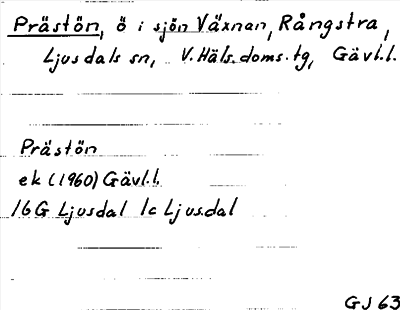 Prästön, ö i sjön Växnan, Rångstra,
Ljusdals sn, V. Häls. doms. tg, Gävl.l.
Prästön
ek (1960) Gävl.l.
16G Ljusdal 1c Ljusdal
GJ 63